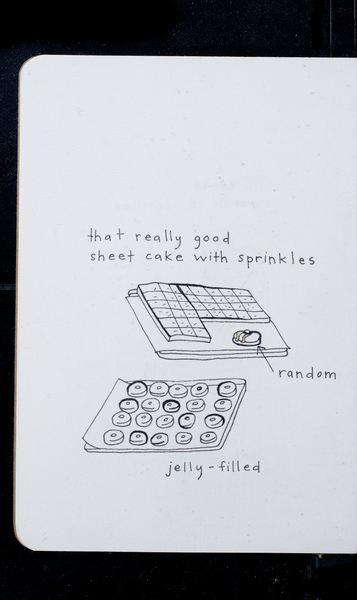 that really good
sheet cake with sprinkles
random
jelly-filled